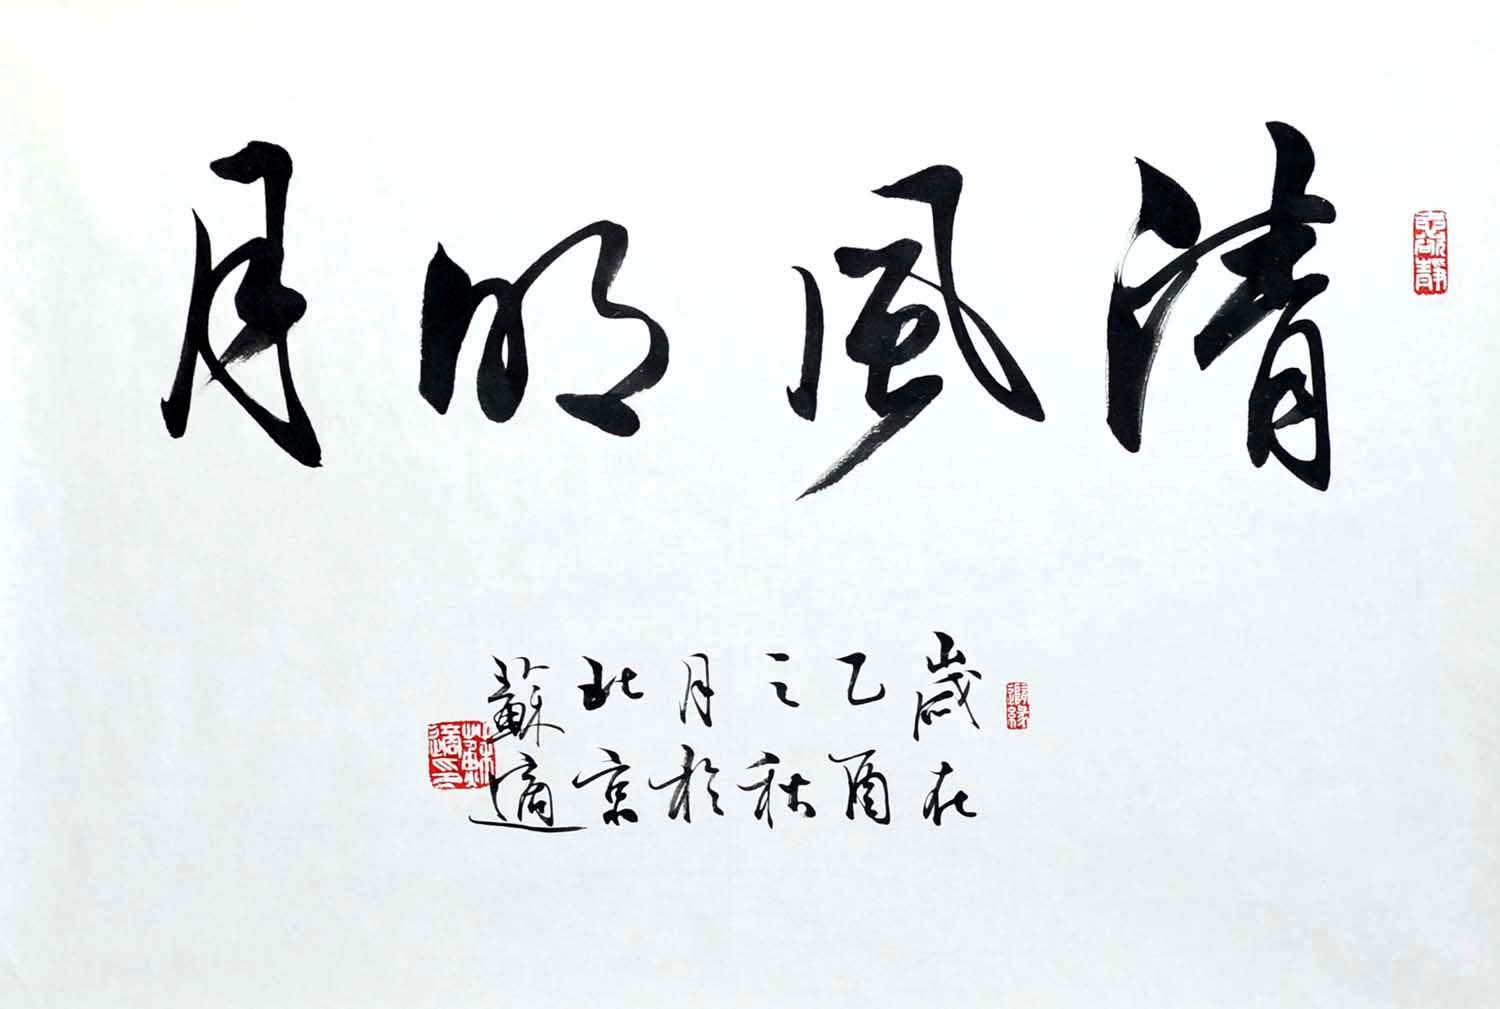 清風明月
歲在
乙酉
之秋
月於
北京
蘇適